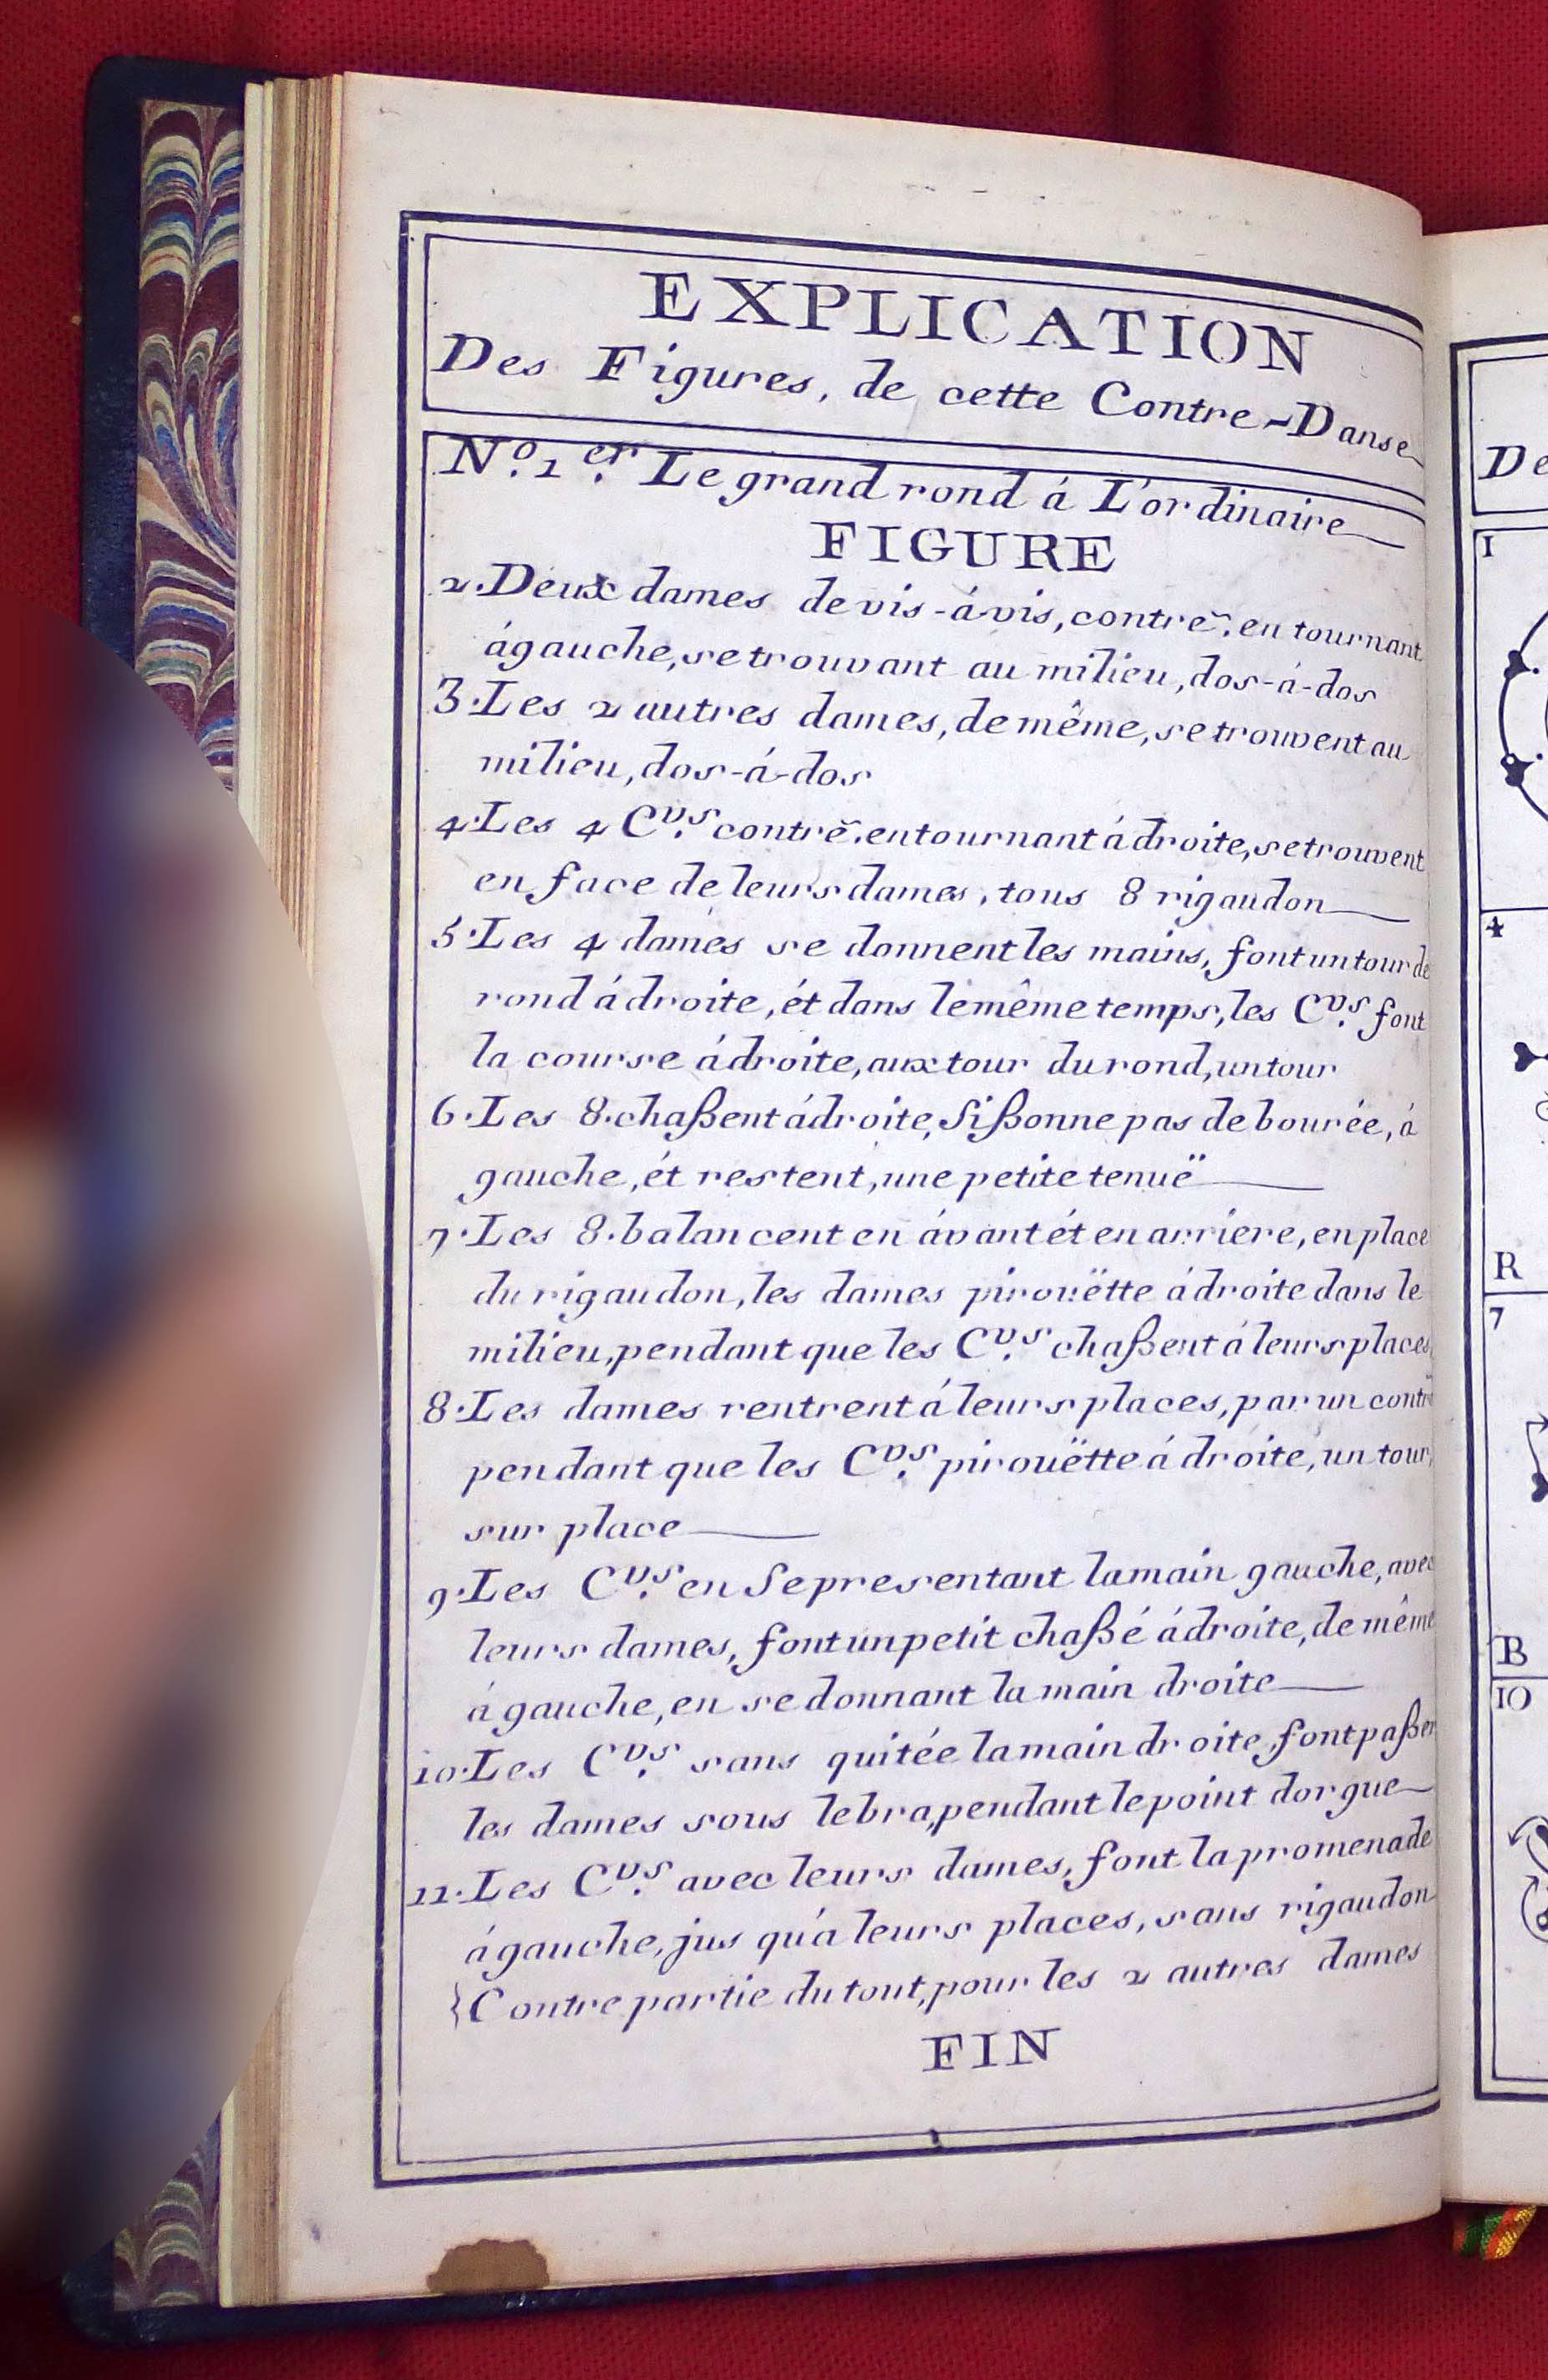 EXPLICATION
Des Figures, de cette Contre-Danse
N.º 1.er Le grand rond á L'ordinaire
FIGURE
2. Deux dames de vis-á-vis, contre.̃ en tournant
ágauche, se trouvant au milieu, dos-á-dos
3. Les 2 autres dames, de même, se trouvent au
milieu, dos-á-dos
4. Les 4 C.vs contrẽ. en tournant á droite, se trouvent
en face de leurs dames, tous 8 rigaudon
5. Les 4 dames se donnent les mains, font un tour de
rond á droite, ét dans le même temps, les C.vs font
la course ádroite, aux tour du rond, un tour
6. Les 8. chaßent ádroite, Sißonne pas de bourée, á
gauche, ét restent, une petite tenuë
7. Les 8. balancent en ávant ét en arriere, en place
du rigaudon, les dames pirouëtte ádroite dans le
milieu, pendant que les C.vs chaßent á leurs places
8. Les dames rentrent á leurs places, par un contrẽ
pendant que les C.vs pirouëtte á droite, un tour,
sur place
9. Les C.vs en Sepresentant la main gauche, avec
leurs dames, font un petit chaßé ádroite, de même
á gauche, en se donnant la main droite
10. Les C.vs sans quitée la main droite, font paßer
les dames sous le bra, pendant le point dorgue
11. Les C.vs avec leurs dames, font la promenade
á gauche, jus qu'a leurs places, sans rigaudon
}Contre partie du tout, pour les 2 autres dames
FIN
De
1
4
R
7
B
10